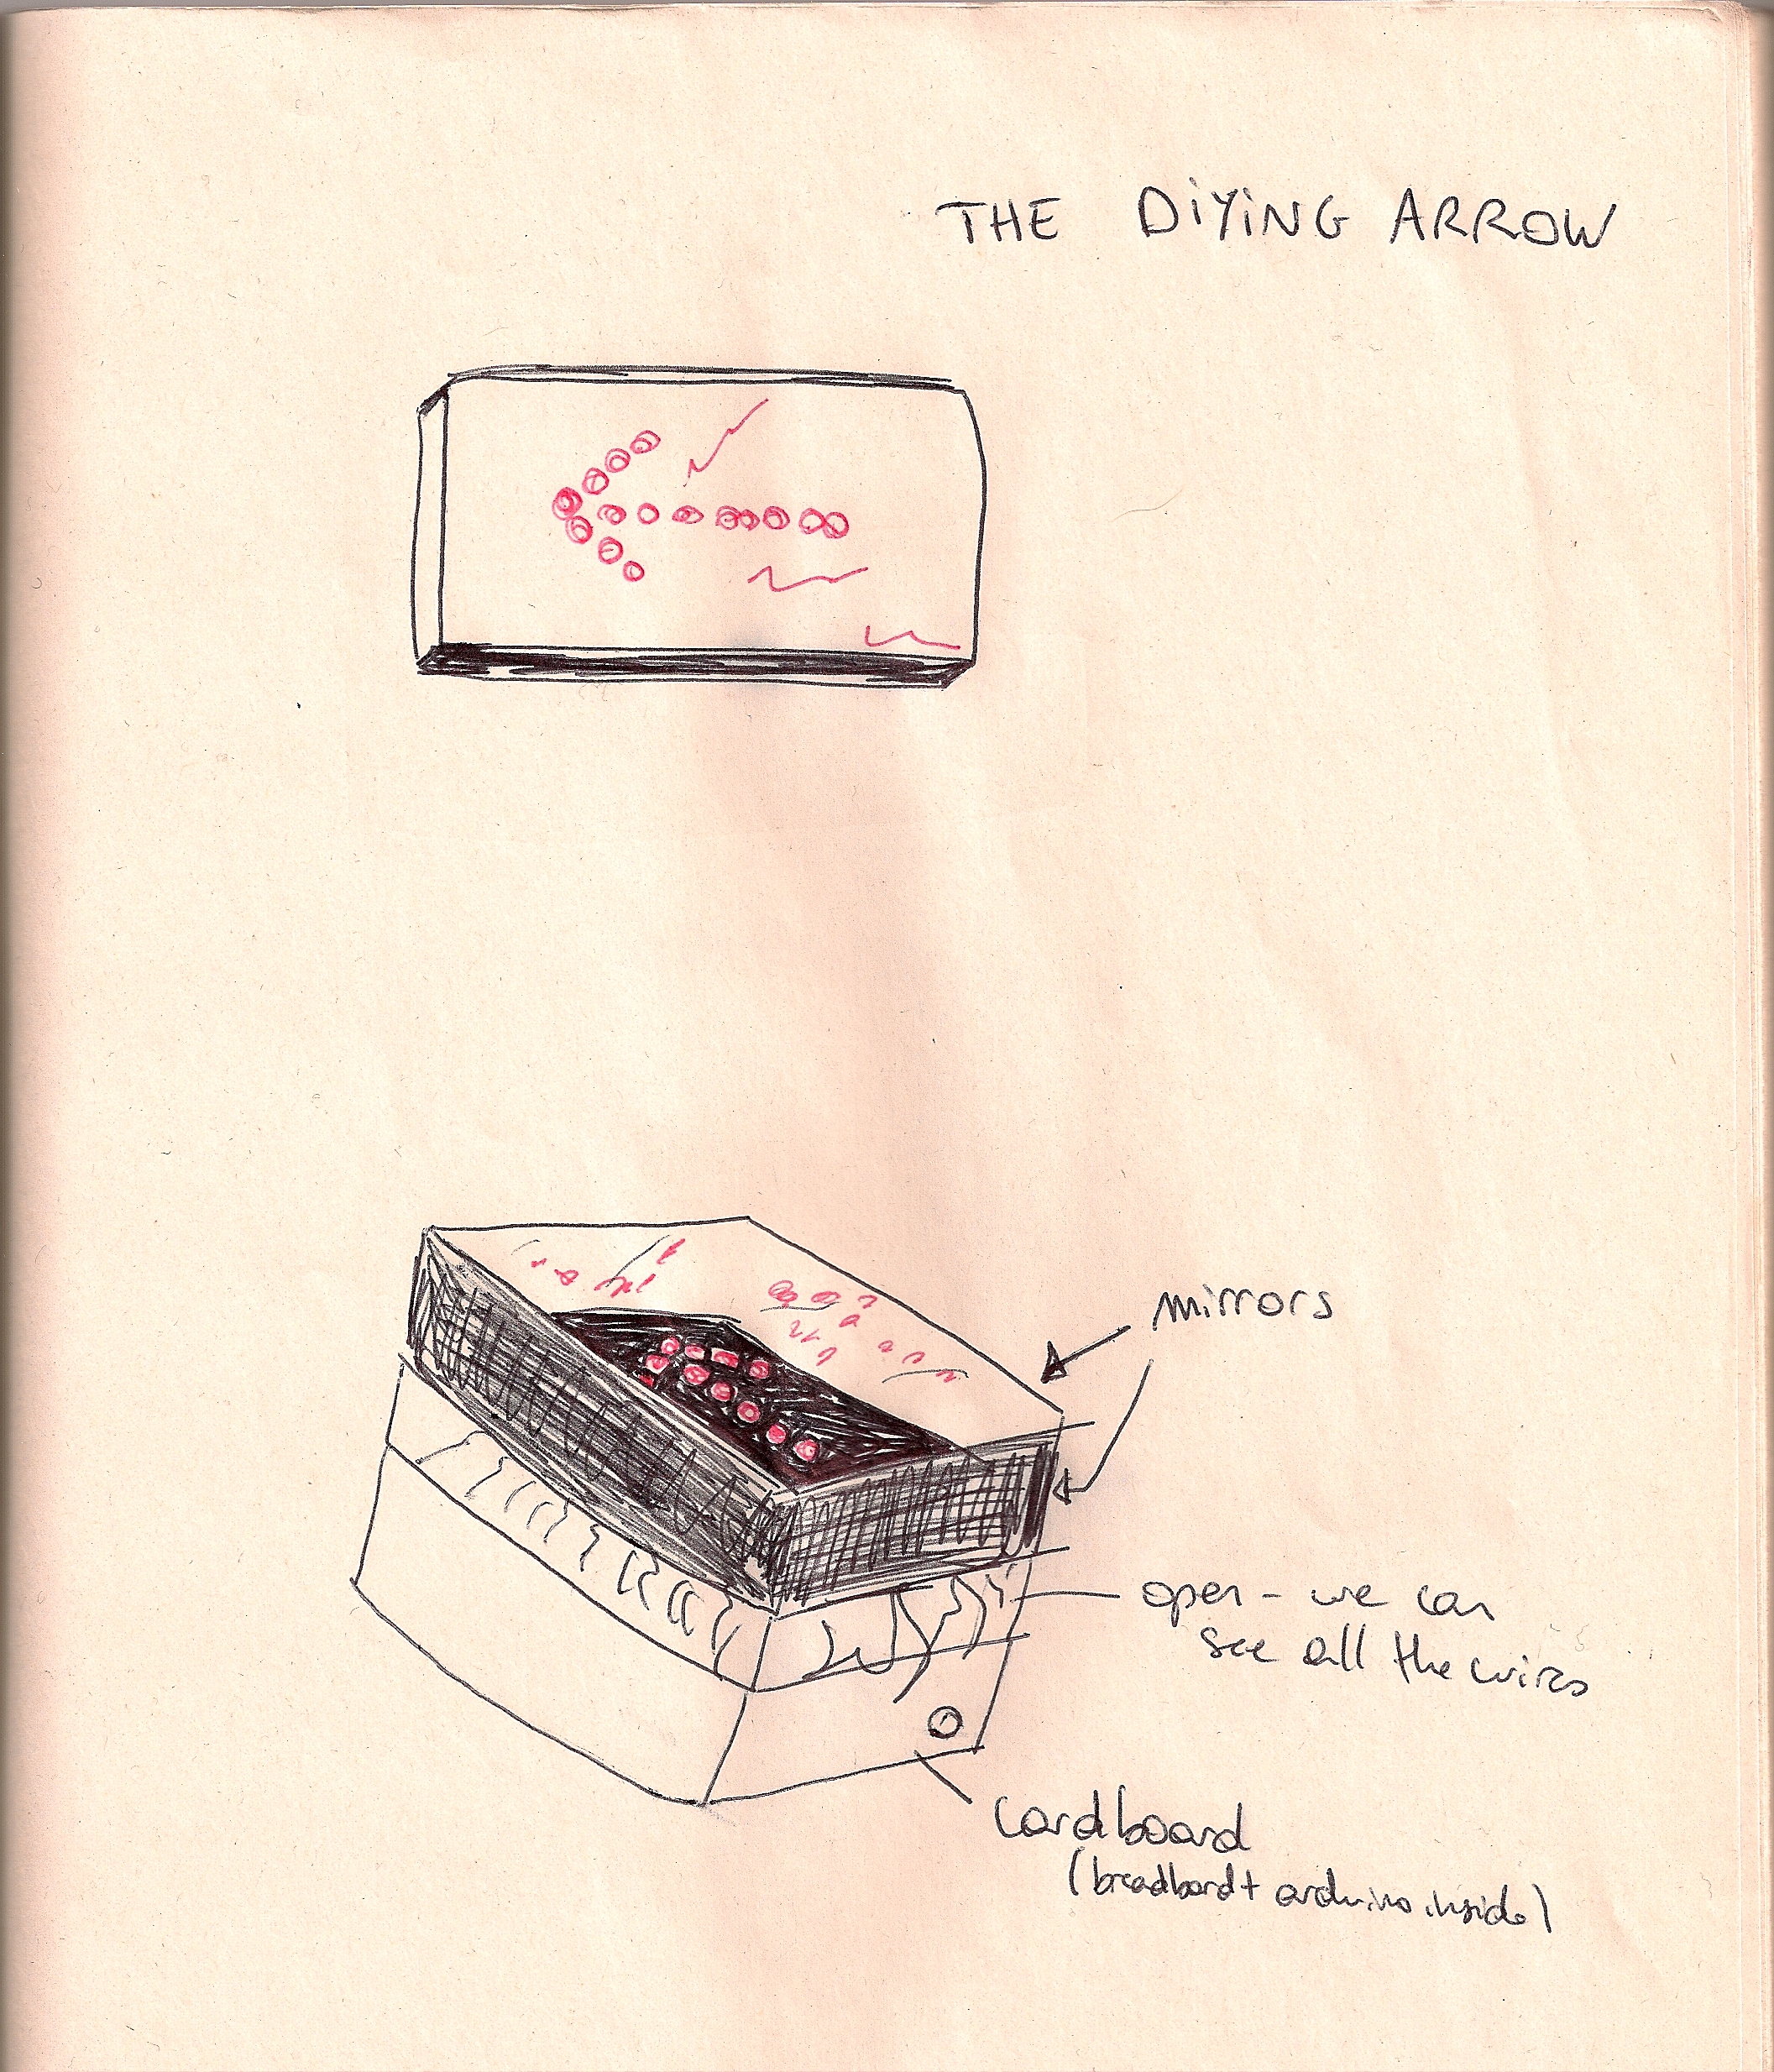 THE DiYiNG ARROW
mirrors
open - we can
see all the wires
cardboard
(breadbord + arduino inside)